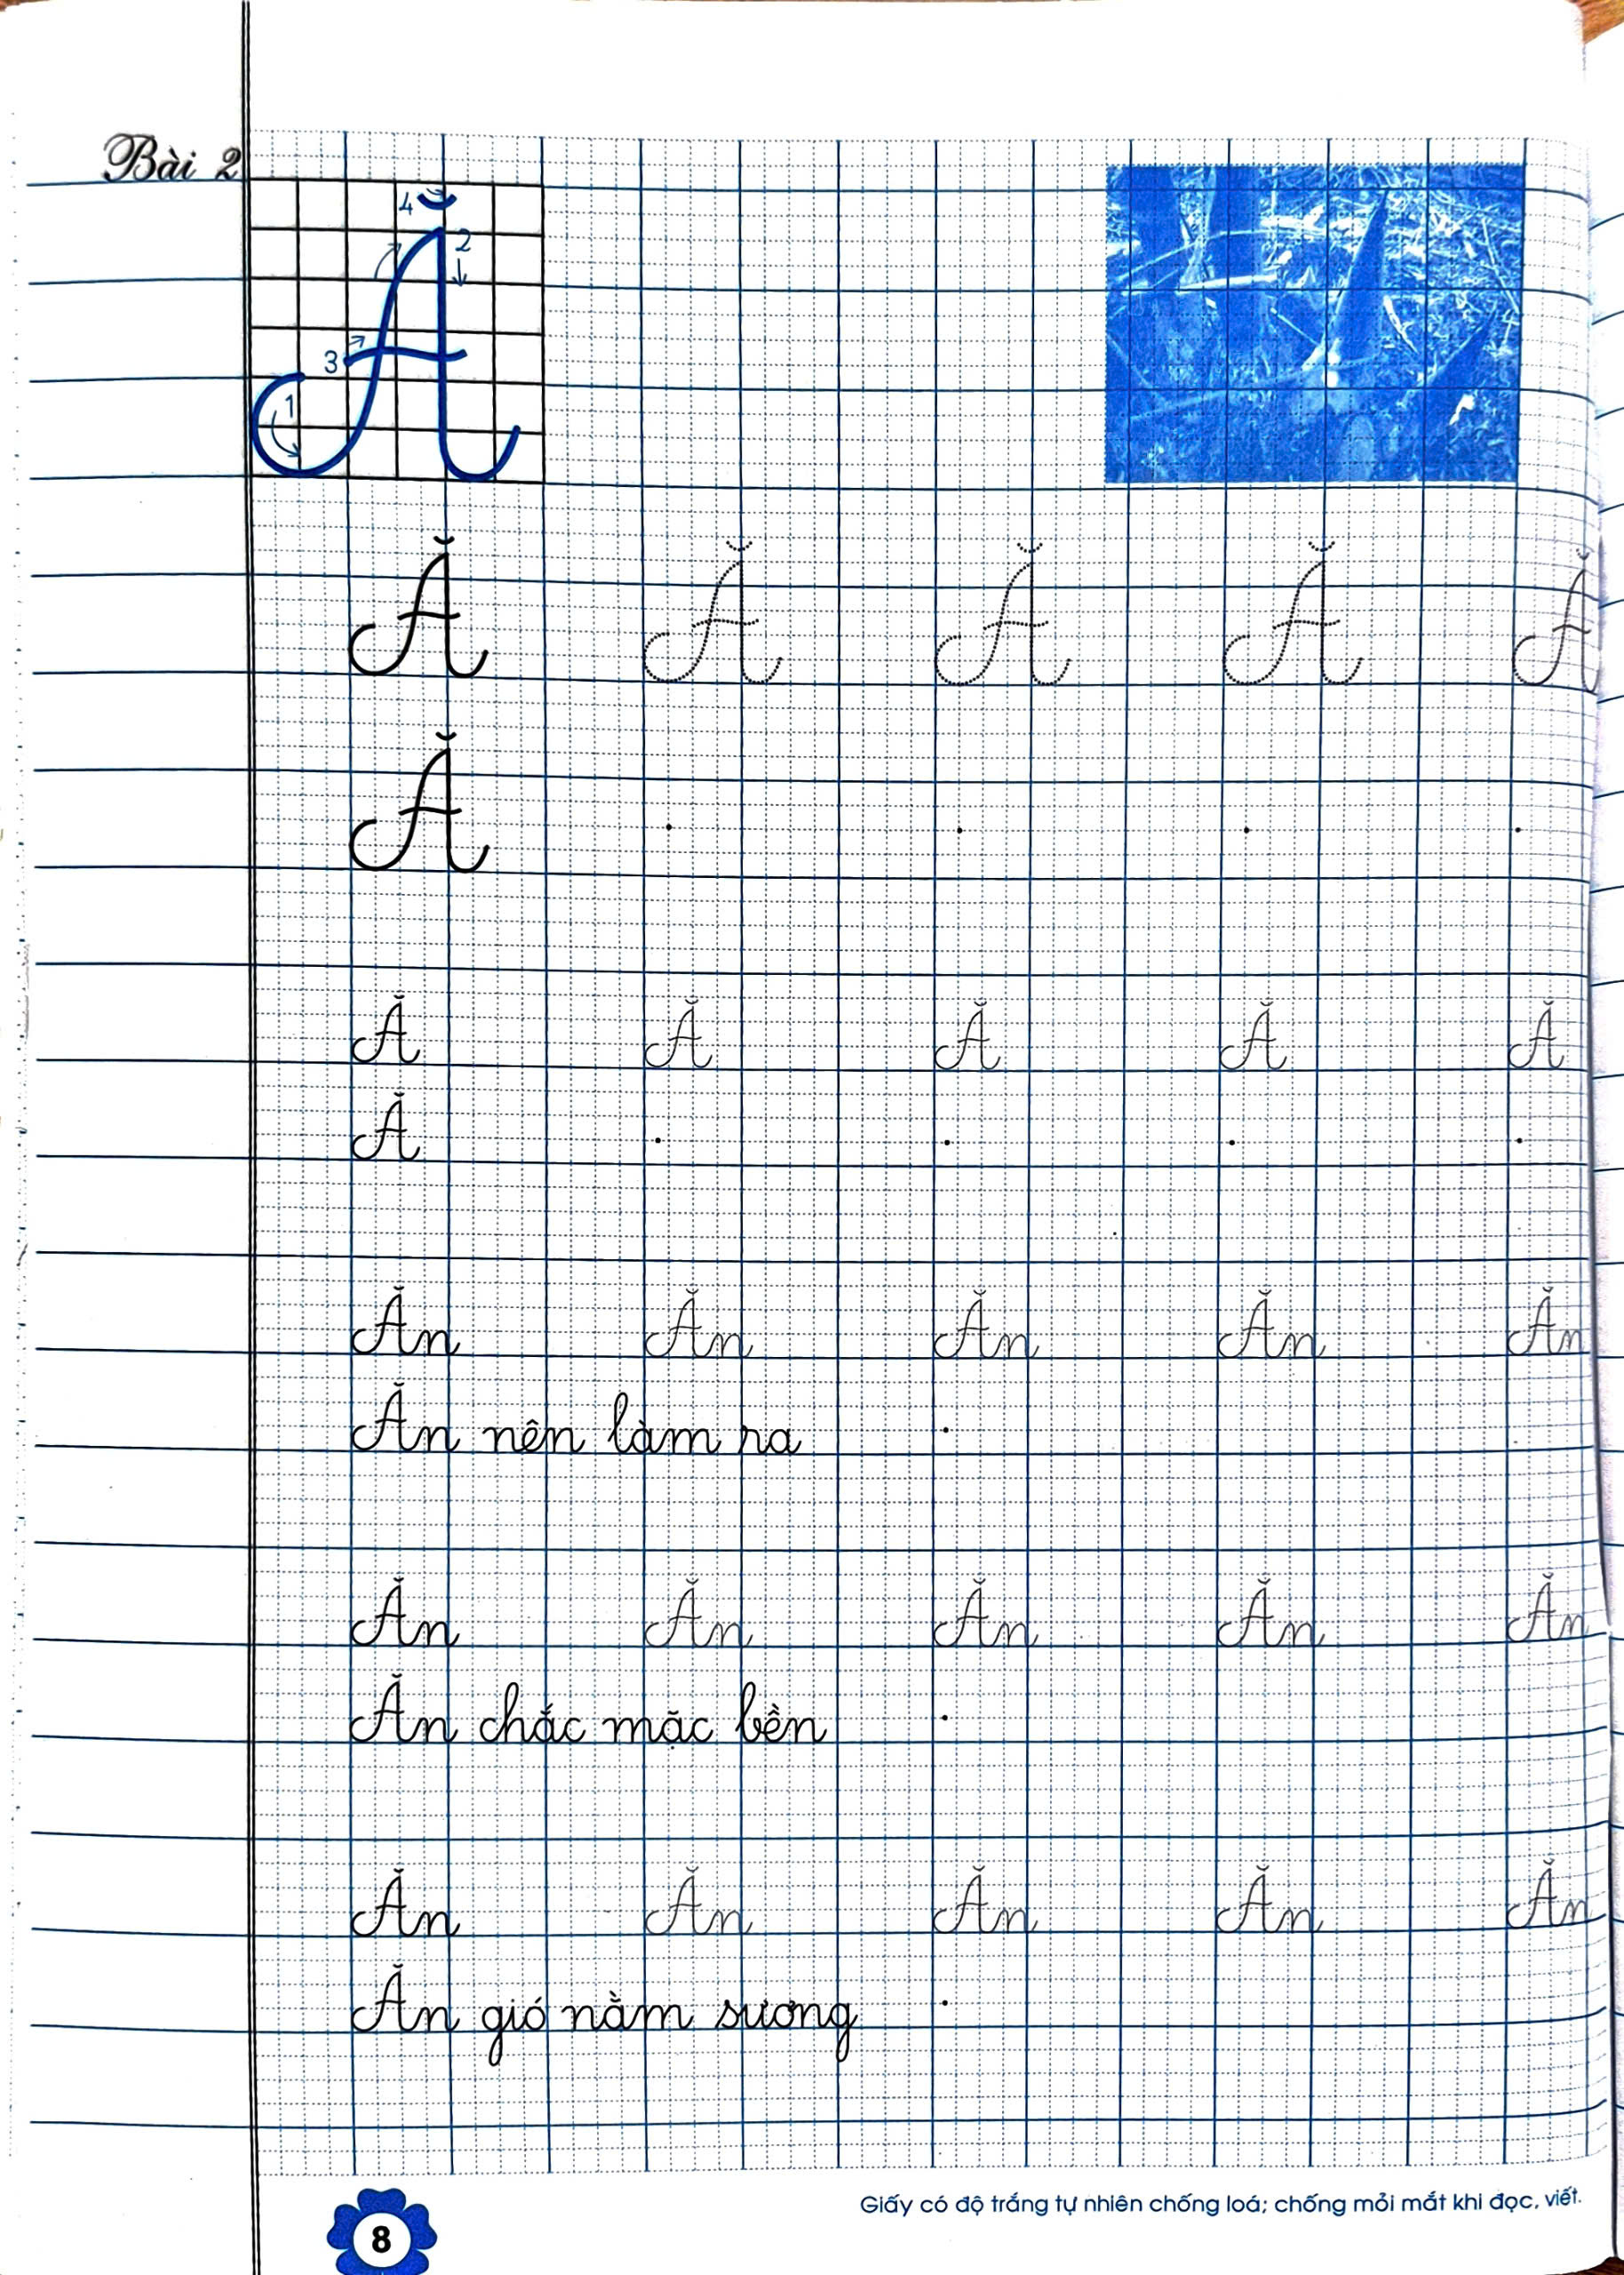 Bài 2
4 2 3 1 Ă
Ă Ă Ă Ă Ă
Ă
Ă Ă Ă Ă Ă
Ă
Ăn Ăn Ăn Ăn Ăn
Ăn nên làm ra
Ăn Ăn Ăn Ăn Ăn
Ăn chắc mặc bền
Ăn Ăn Ăn Ăn Ăn
Ăn gió nằm sương
Giấy có độ trắng tự nhiên chống loá; chống mỏi mắt khi đọc, viết.
8